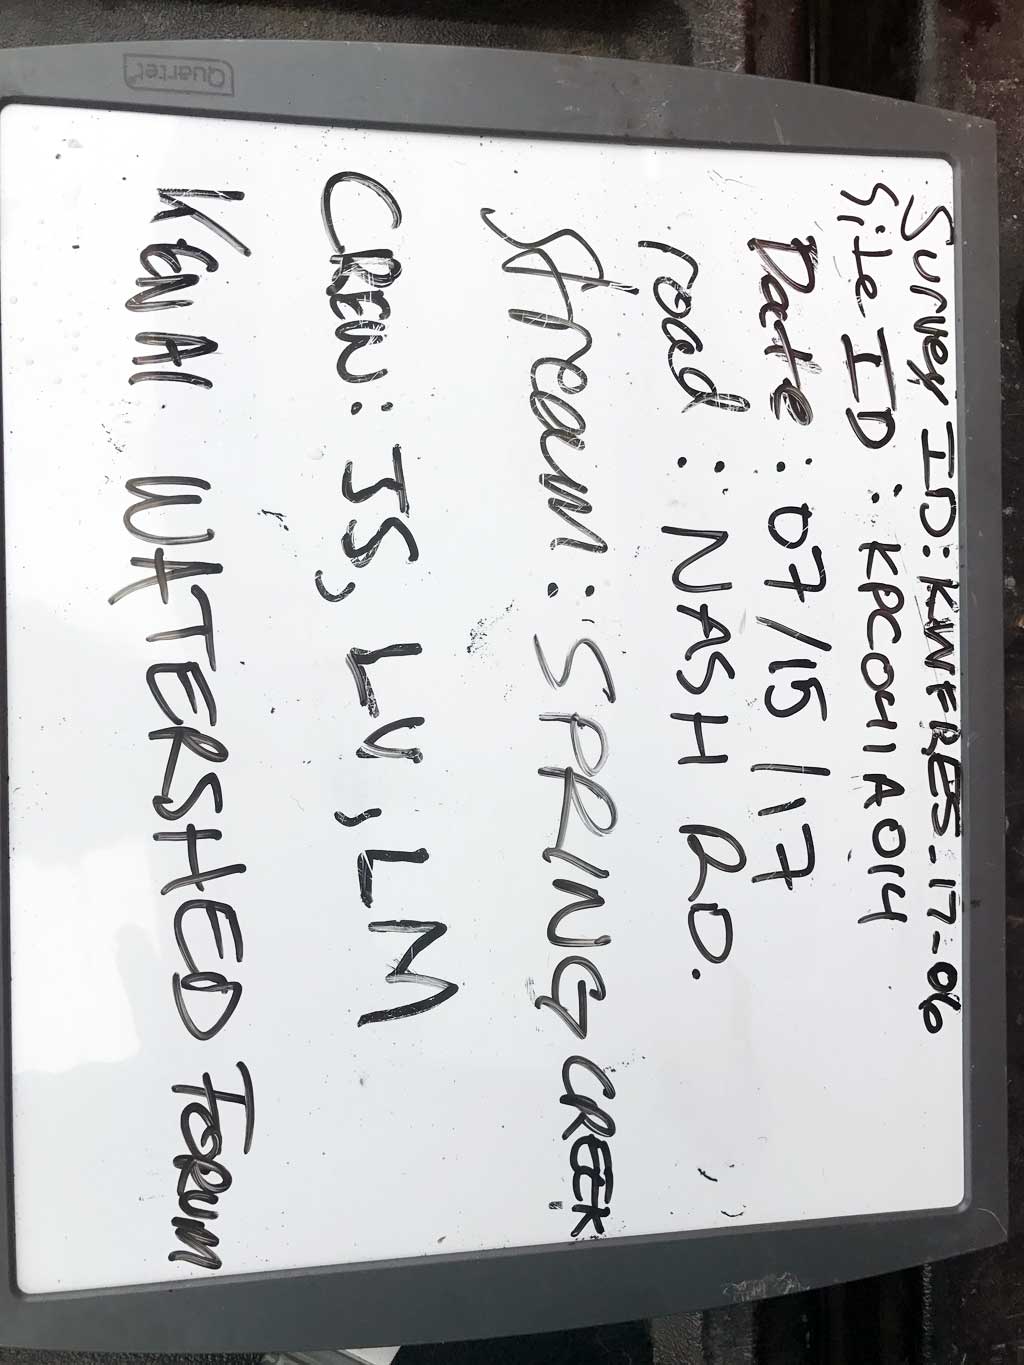 Survey ID: KWFRES-17-06
Site ID: KPC0411A014
Date: 07/15/17
road: NASH RD.
Stream: SPRING CREEK
CREW: JS, LV, LM
KENAI WATERSHED FORUM
Quartet